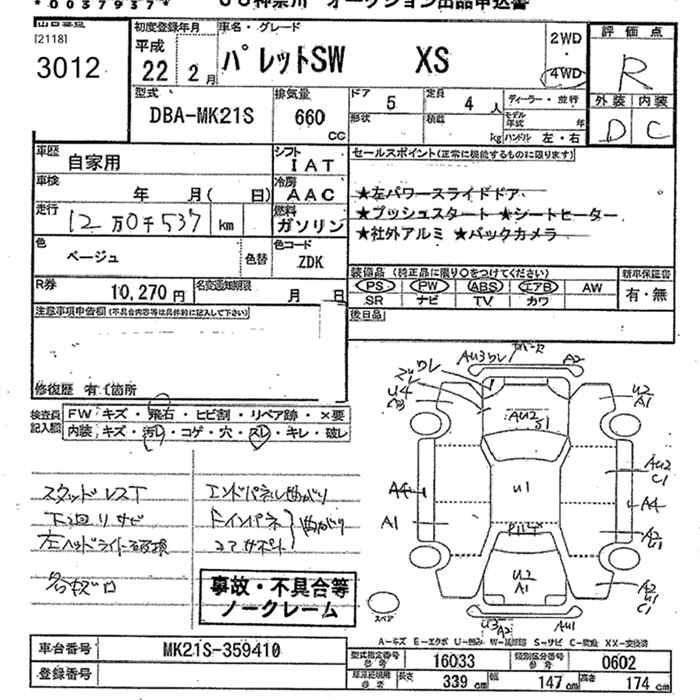 *0037937* JU神奈川 オークション出品申込書
[2118]
3012
初度登録年月
平成
22年2月
車名・グレード
パレットSW XS
2WD
・
4WD
評価点
R
外装 内装
D C
型式
DBA-MK21S
排気量
660
CC
ドア 5
定員 4 人
ディーラー・並行
形状
積載 kg
モデル年式 年
ハンドル 左・右
車歴
自家用
シフト
IAT
セールスポイント(正常に機能するものに限ります)
車検
年 月( 日)
冷房
AAC
★左パワースライドドア
★プッシュスタート ★シートヒーター
★社外アルミ ★バックカメラ
走行
12万0千537 km
燃料
ガソリン
色
ベージュ
色替
色コード
ZDK
R券
10,270円
名変通知期限
月 日
装備品 (純正品に限り○をつけてください)
PS PW ABS エアB AW
SR ナビ TV カワ
新車保証書
有・無
後日品
注意事項申告欄(不具合内容等は具体的に記入して下さい)
修復歴 有 (箇所
検査員記入欄
FW キズ・飛石・ヒビ割・リペア跡・×要
内装 キズ・汚レ・コゲ・穴・スレ・キレ・破レ
スタッドレスT
下回リサビ
エンドパネル曲がり
コアサポート
曲がり
事故・不具合等
ノークレーム
U4
AU3
A2
AU2
S1
U2
A1
AU2
C1
A4
A4
A1
U1
A2
U1
U2
A1
A2
U1
C1
U3
A2
AU1
スペア
A-キズ E-エクボ U-凹み S-サビ XX-交換済
車台番号
MK21S-359410
登録番号
型式指定番号
参考
16033
類別区分番号
参考
0602
長さ 339 cm
幅 147 cm
高さ 174 cm